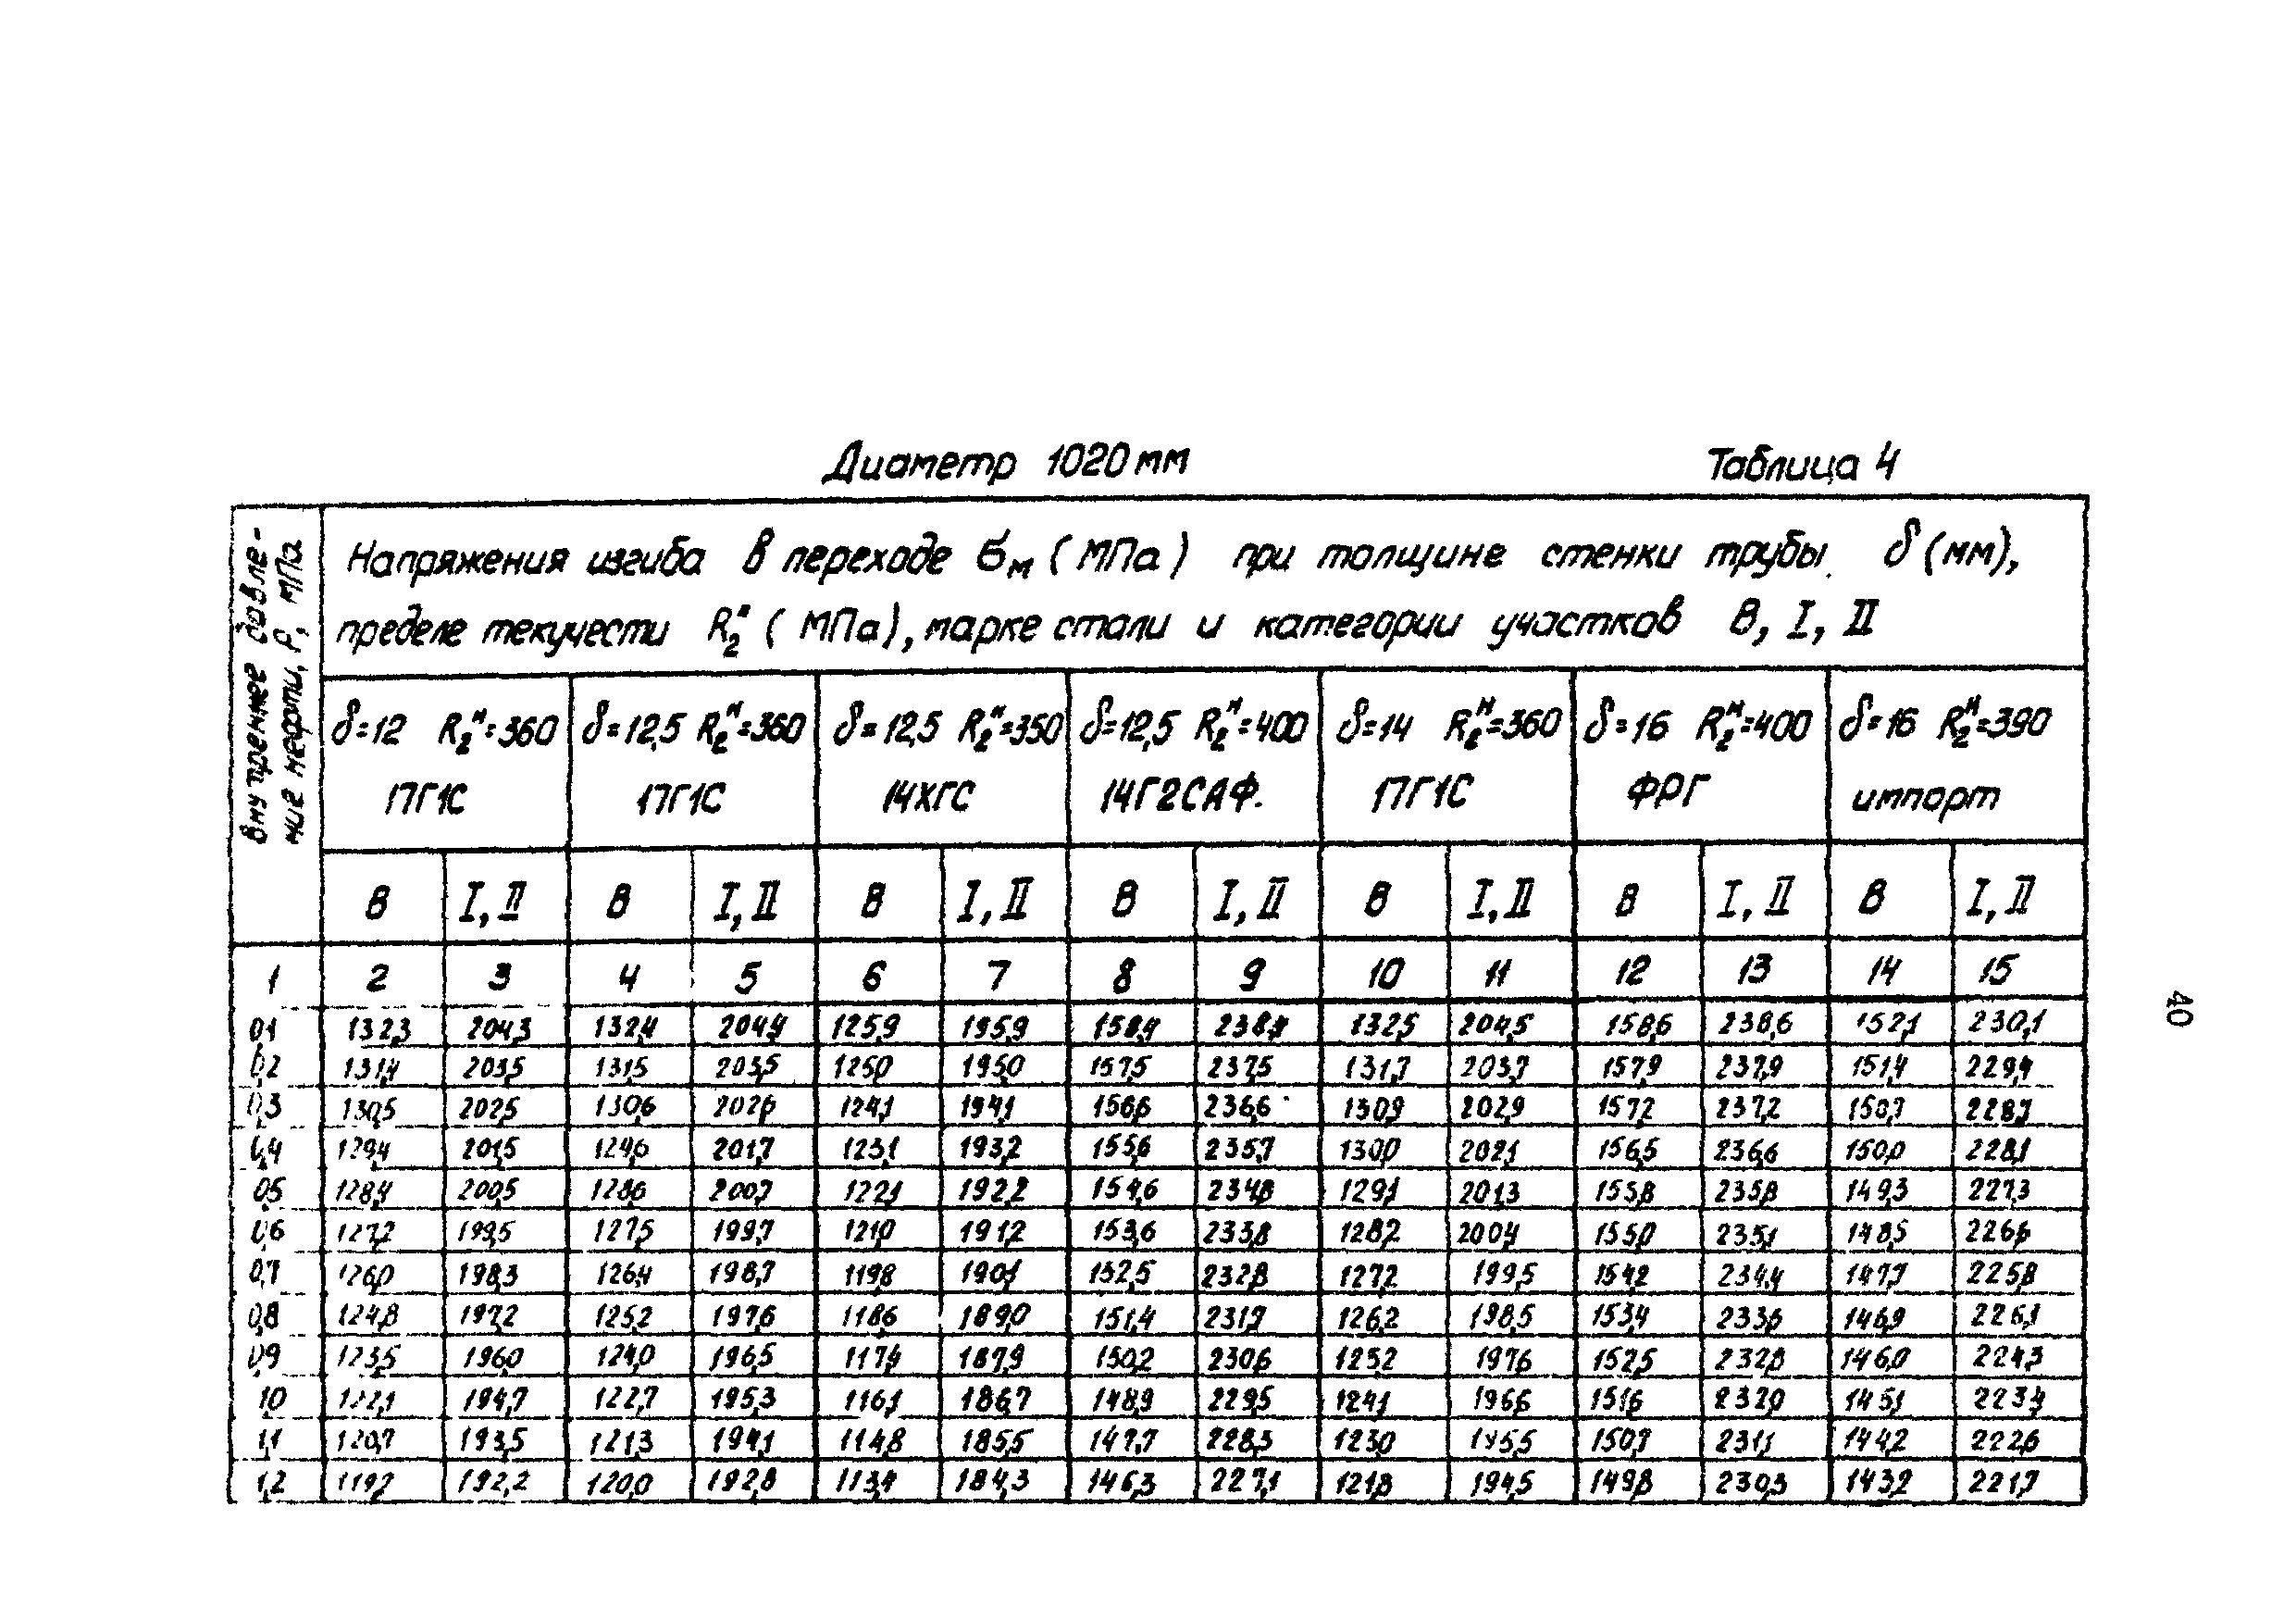 Диаметр 1020 мм Таблица 4
Внутреннее давле-
ние нефти, Р, МПа
Напряжения изгиба в переходе σм (МПа) при толщине стенки трубы δ (мм),
пределе текучести R₂ᴴ (МПа), марке стали и категории участков В, I, II
δ=12 R₂ᴴ=360 δ=12,5 R₂ᴴ=360 δ=12,5 R₂ᴴ=350 δ=12,5 R₂ᴴ=400 δ=14 R₂ᴴ=360 δ=16 R₂ᴴ=400 δ=16 R₂ᴴ=390
17Г1С 17Г1С 14ХГС 14Г2САФ. 17Г1С ФРГ импорт
В I, II В I, II В I, II В I, II В I, II В I, II В I, II
1 2 3 4 5 6 7 8 9 10 11 12 13 14 15
0,1 132,3 204,3 132,4 204,4 125,9 195,9 158,4 238,4 132,5 204,5 158,6 238,6 152,1 230,1
0,2 131,4 203,5 131,5 203,5 125,0 195,0 157,5 237,5 131,7 203,7 157,9 237,9 151,4 229,4
0,3 130,5 202,5 130,6 202,6 124,1 194,1 156,6 236,6 130,9 202,9 157,2 237,2 150,7 228,7
0,4 129,4 201,5 129,6 201,7 123,1 193,2 155,6 235,7 130,0 202,1 156,5 236,6 150,0 228,1
0,5 128,4 200,5 128,6 200,7 122,1 192,2 154,6 234,8 129,1 201,3 155,8 235,8 149,3 227,3
0,6 127,2 199,5 127,5 199,7 121,0 191,2 153,6 233,8 128,2 200,4 155,0 235,1 148,5 226,6
0,7 126,0 198,3 126,4 198,7 119,8 190,1 152,5 232,8 127,2 199,5 154,2 234,4 147,7 225,8
0,8 124,8 197,2 125,2 197,6 118,6 189,0 151,4 231,7 126,2 198,5 153,4 233,6 146,9 226,1
0,9 123,5 196,0 124,0 196,5 117,4 187,9 150,2 230,6 125,2 197,6 152,5 232,8 146,0 224,3
1,0 122,1 194,7 122,7 195,3 116,1 186,7 148,9 229,5 124,1 196,6 151,6 232,0 145,1 223,4
1,1 120,7 193,5 121,3 194,1 114,8 185,5 147,7 228,3 123,0 195,5 150,7 231,1 144,2 222,6
1,2 119,2 192,2 120,0 192,8 113,4 184,3 146,3 227,1 121,8 194,5 149,8 230,3 143,2 221,7
40